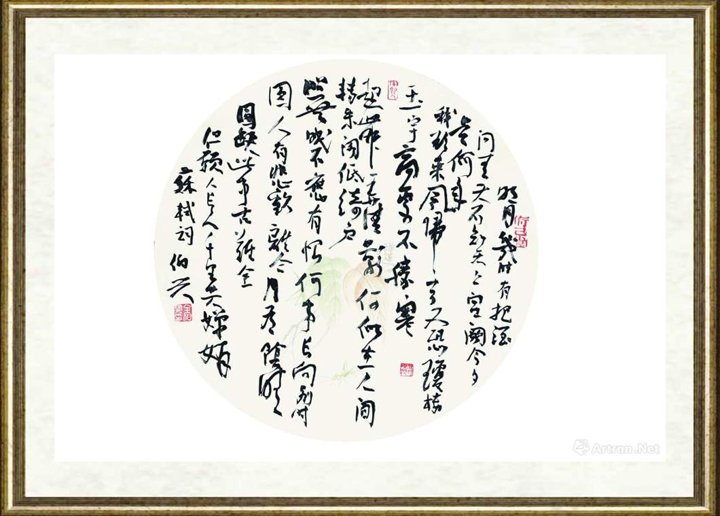 明月幾时有把酒
问青天不知天上宫阙今夕
是何年
我欲乘风归去又恐瓊楼
玉宇高处不勝寒
起舞弄清影何似在人间
转朱阁低绮户
照無眠不應有恨何事长向别时
圆人有悲歡離合月有陰晴
圆缺此事古難全
但願人长久千里共嬋娟
蘇轼词 伯
Artron.Net